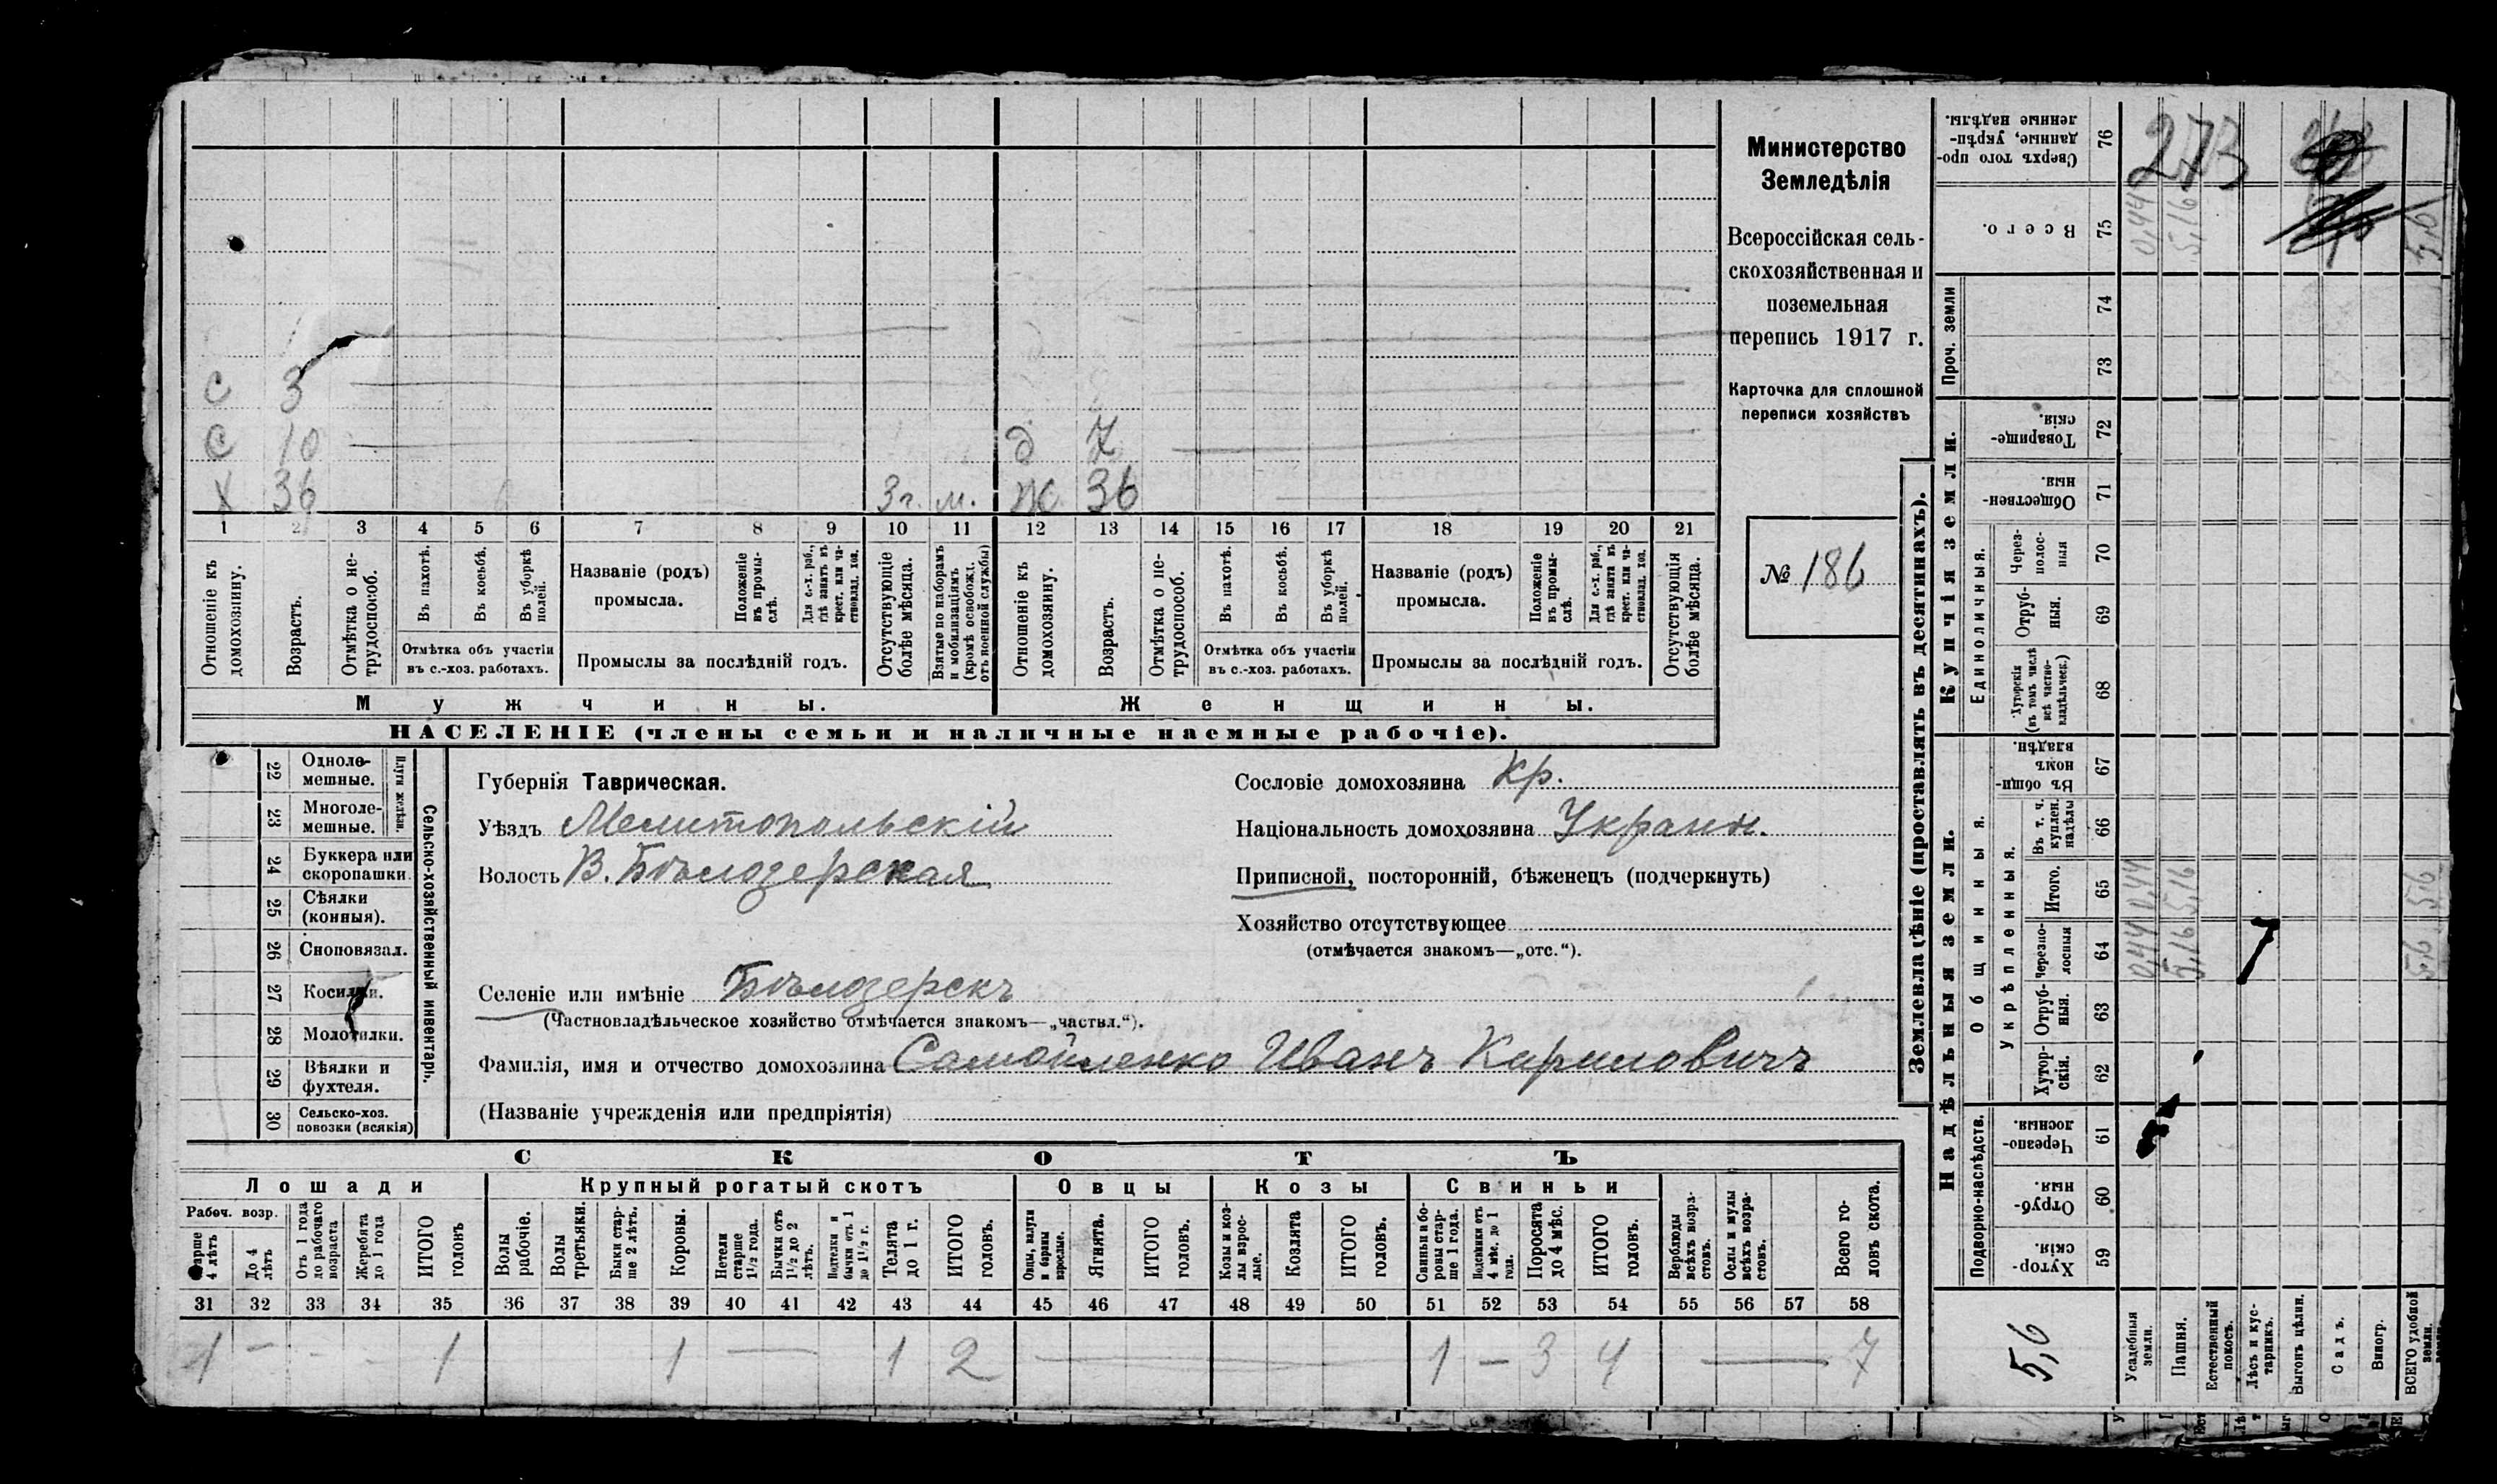 Министерство
Земледѣлія
Всероссійская сель-
скохозяйственная и
поземельная
перепись 1917 г.
Карточка для сплошной
переписи хозяйствъ
№ 186
С 3
С 10 д 7
Х 36 3 г. м. ж 36
1 2 3 4 5 6 7 8 9 10 11 12 13 14 15 16 17 18 19 20 21
Отношеніе къ домохозяину.
Возрастъ.
Отмѣтка о не-трудоспособ.
Въ пахотѣ.
Въ косьбѣ.
Въ уборкѣ полей.
Отмѣтка объ участіи
въ с.-хоз. работахъ.
Названіе (родъ)
промысла.
Положеніе въ промы-слѣ.
Для с.-х. раб., гдѣ занятъ въ крест. или ча-стновлад. хоз.
Промыслы за послѣдній годъ.
Отсутствующіе болѣе мѣсяца.
Взятые по наборамъ и мобилизаціямъ (кромѣ освобожд. отъ военной службы)
Отношеніе къ домохозяину.
Возрастъ.
Отмѣтка о не-трудоспособ.
Въ пахотѣ.
Въ косьбѣ.
Въ уборкѣ полей.
Отмѣтка объ участіи
въ с.-хоз. работахъ.
Названіе (родъ)
промысла.
Положеніе въ промы-слѣ.
Для с.-х. раб., гдѣ занята въ крест. или ча-стновлад. хоз.
Промыслы за послѣдній годъ.
Отсутствующія болѣе мѣсяца.
Мужчины. Женщины.
НАСЕЛЕНІЕ (члены семьи и наличные наемные рабочіе).
22 Одноле-мешные.
23 Многоле-мешные.
Плуги желѣзн.
24 Буккера или скоропашки.
25 Сѣялки (конныя).
26 Сноповязал.
27 Косилки.
28 Молотилки.
29 Вѣялки и фухтеля.
30 Сельско-хоз. повозки (всякія)
Сельско-хозяйственный инвентарь.
Губернія Таврическая.
Уѣздъ Мелитопольскій
Волость В. Бѣлозерская
Селеніе или имѣніе Бѣлозерскъ
(Частновладѣльческое хозяйство отмѣчается знакомъ—„частвл.“).
Фамилія, имя и отчество домохозяина Самойленко Иванъ Кириловичъ
(Названіе учрежденія или предпріятія)
Сословіе домохозяина Кр.
Національность домохозяина Украин.
Приписной, посторонній, бѣженецъ (подчеркнуть)
Хозяйство отсутствующее
(отмѣчается знакомъ—„отс.“).
СКОТЪ
Лошади Крупный рогатый скотъ Овцы Козы Свиньи
Рабоч. возр.
Старше 4 лѣтъ
До 4 лѣтъ
Отъ 1 года до рабочаго возраста
Жеребята до 1 года
ИТОГО головъ
Волы рабочіе.
Волы третьяки.
Быки стар-ше 2 лѣтъ.
Коровы.
Нетели старше 1½ года.
Бычки отъ 1½ до 2 лѣтъ.
Подтелки и бычки отъ 1 до 1½ г.
Телята до 1 г.
ИТОГО головъ.
Овцы, валухи и бараны взрослые.
Ягнята.
ИТОГО головъ.
Козы и коз-лы взрос-лые.
Козлята
ИТОГО головъ.
Свиньи и бо-ровы стар-ше 1 года.
Подсвинки отъ 4 мѣс. до 1 года.
Поросята до 4 мѣс.
ИТОГО головъ.
Верблюды всѣхъ возра-стовъ.
Ослы и мулы всѣхъ возра-стовъ.
Всего го-ловъ скота.
31 32 33 34 35 36 37 38 39 40 41 42 43 44 45 46 47 48 49 50 51 52 53 54 55 56 57 58
1 - - - 1 1 — 1 2 — 1 - 3 4 — 7
Землевладѣніе (проставлять въ десятинахъ).
Купчія земли.
Надѣльныя земли.
Сверхъ того про-данные, укрѣп-ленные надѣлы. 76
Всего. 75
Проч. земли 74 73
Товарище-скія. 72
Обществен-ныя 71
Единоличныя.
Через-полос-ныя 70
Отруб-ныя. 69
Хуторскія (въ томъ числѣ всѣ частно-владѣльческ.) 68
Общинныя.
Въ общи-номъ владѣн. 67
Укрѣпленныя.
Въ т. ч. куплен. надѣлы 66
Итого. 65
Черезпо-лосныя 64
Отруб-ныя. 63
Хутор-скія. 62
Подворно-наслѣдств.
Черезпо-лосныя. 61
Отруб-ныя. 60
Хутор-скія. 59
273
0,44 5,16
0,44 0,44
5,16 5,16
5,6 5,6
7
5,6
Усадебныя земли.
Пашня.
Естественный покосъ.
Лѣсъ и кус-тарникъ.
Выгонъ цѣлин.
Садъ.
Виногр.
ВСЕГО удобной земли.